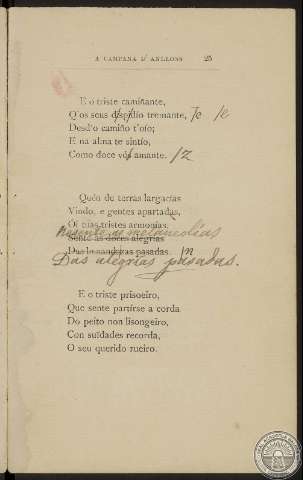 A CAMPANA D' ANLLONS 25
E o triste camiñante,
Q'os seus despidío tremante, /e /e
Desd'o camiño t'oío;
E na alma te sintío,
Como doce vós amante. /z
Quén de terras largacías
Vindo, e gentes apartadas,
Oi tuas tristes armonías,
Sente as doces alegrías
de melancolías
Das lexandeiras pasadas.
Das alegrías pasadas.
E o triste prisoeiro,
Que sente partirse a corda
Do peito non lisongeiro,
Con suidades recorda,
O seu querido rueiro.